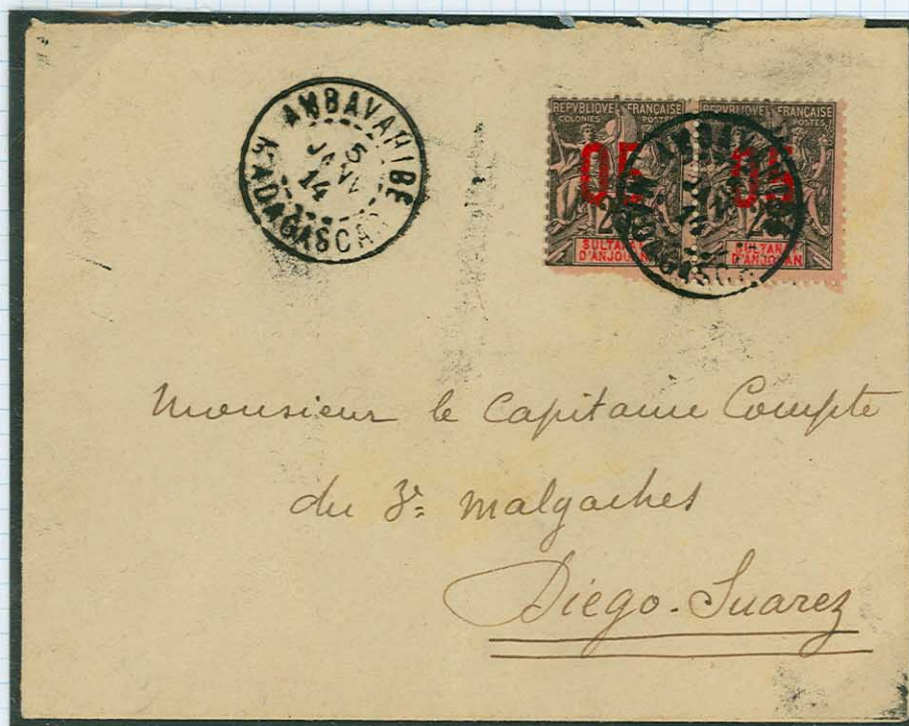 AMBAVAHIBE
5
JANV
14
MADAGASCAR
REPVBLIQVE FRANÇAISE
COLONIES POSTES
05
SULTANAT
D'ANJOUAN
REPVBLIQVE FRANÇAISE
POSTES
05
SULTANAT
D'ANJOUAN
Monsieur le Capitaine Compte
du 3e Malgaches
Diego-Suarez